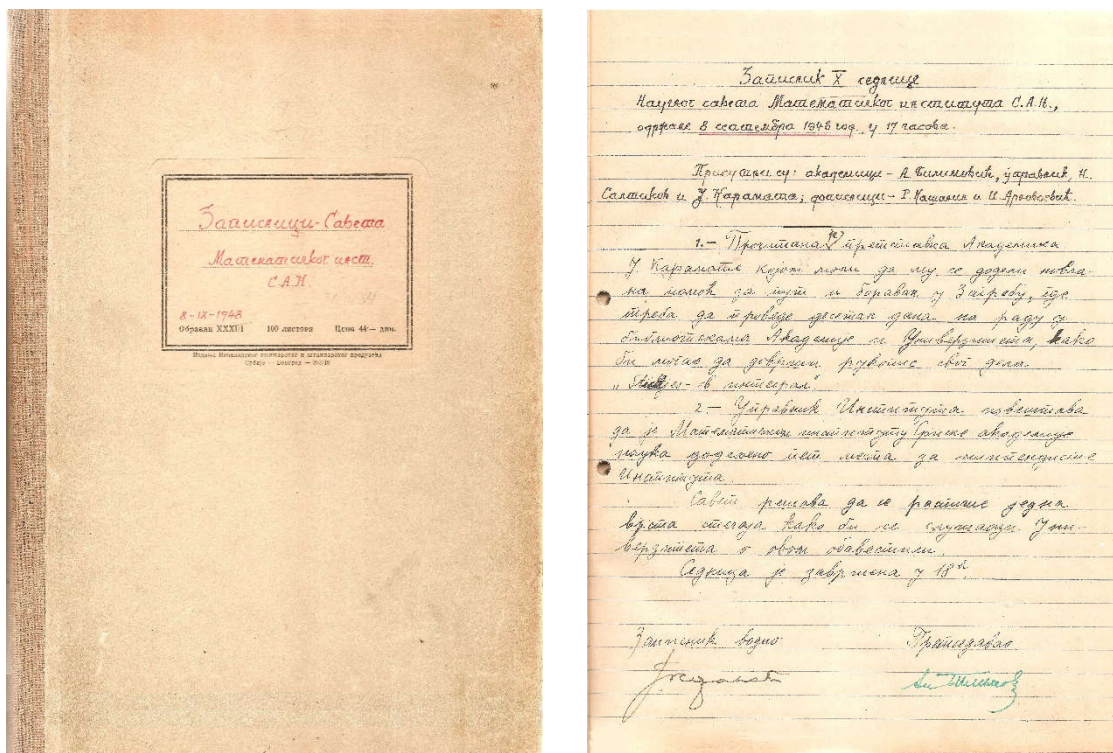 Записници-Савета
Математичког инст.
С.А.Н.
8-IX-1948
Образац XXXI/1 100 листова Цена 44·— дин.
Србије — Београд —
Записник X седнице
Научног савета Математичког института С.А.Н.,
одржане 8 септембра 1948 год. у 17 часова.
Присутни су: академици - А. Билимовић, управник, Н.
Салтиков и Ј. Карамата; дописници - Р. Кашанин и
1.- Прочитана је претставка Академика
Ј. Карамате којом моли да му се додели новча-
на помоћ за пут и боравак у Загребу, где
треба да проведе десетак дана на раду у
библиотекама Академије и Универзитета, како
би могао да доврши рукопис свог дела
„Stieltjes-ов интеграл“
2.- Управник Института извештава
да је Математичком институту Српске академије
наука додељено пет места за
Института.
Савет решава да се распише једна
врста стечаја како би се слушаоци Уни-
верзитета о овом обавестили.
Седница је завршена у 18ч.
Записник водио Претседавао